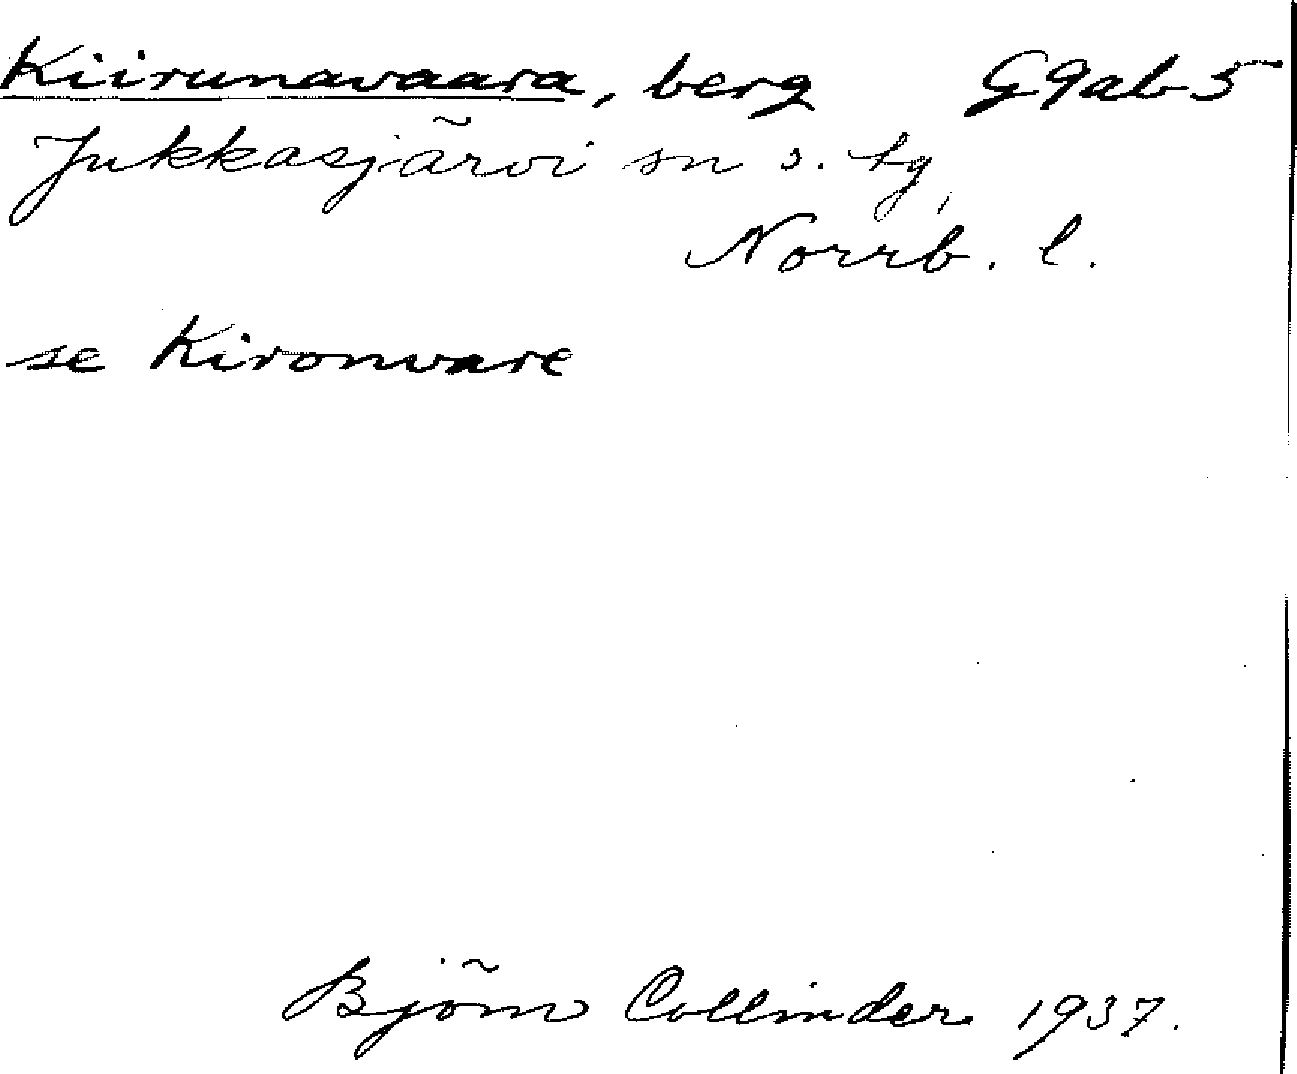 Kiirunavaara, berg G9ab5
Jukkasjärvi sn o. tg,
Norrb. l.
se Kironvare
Björn Collinder 1937.